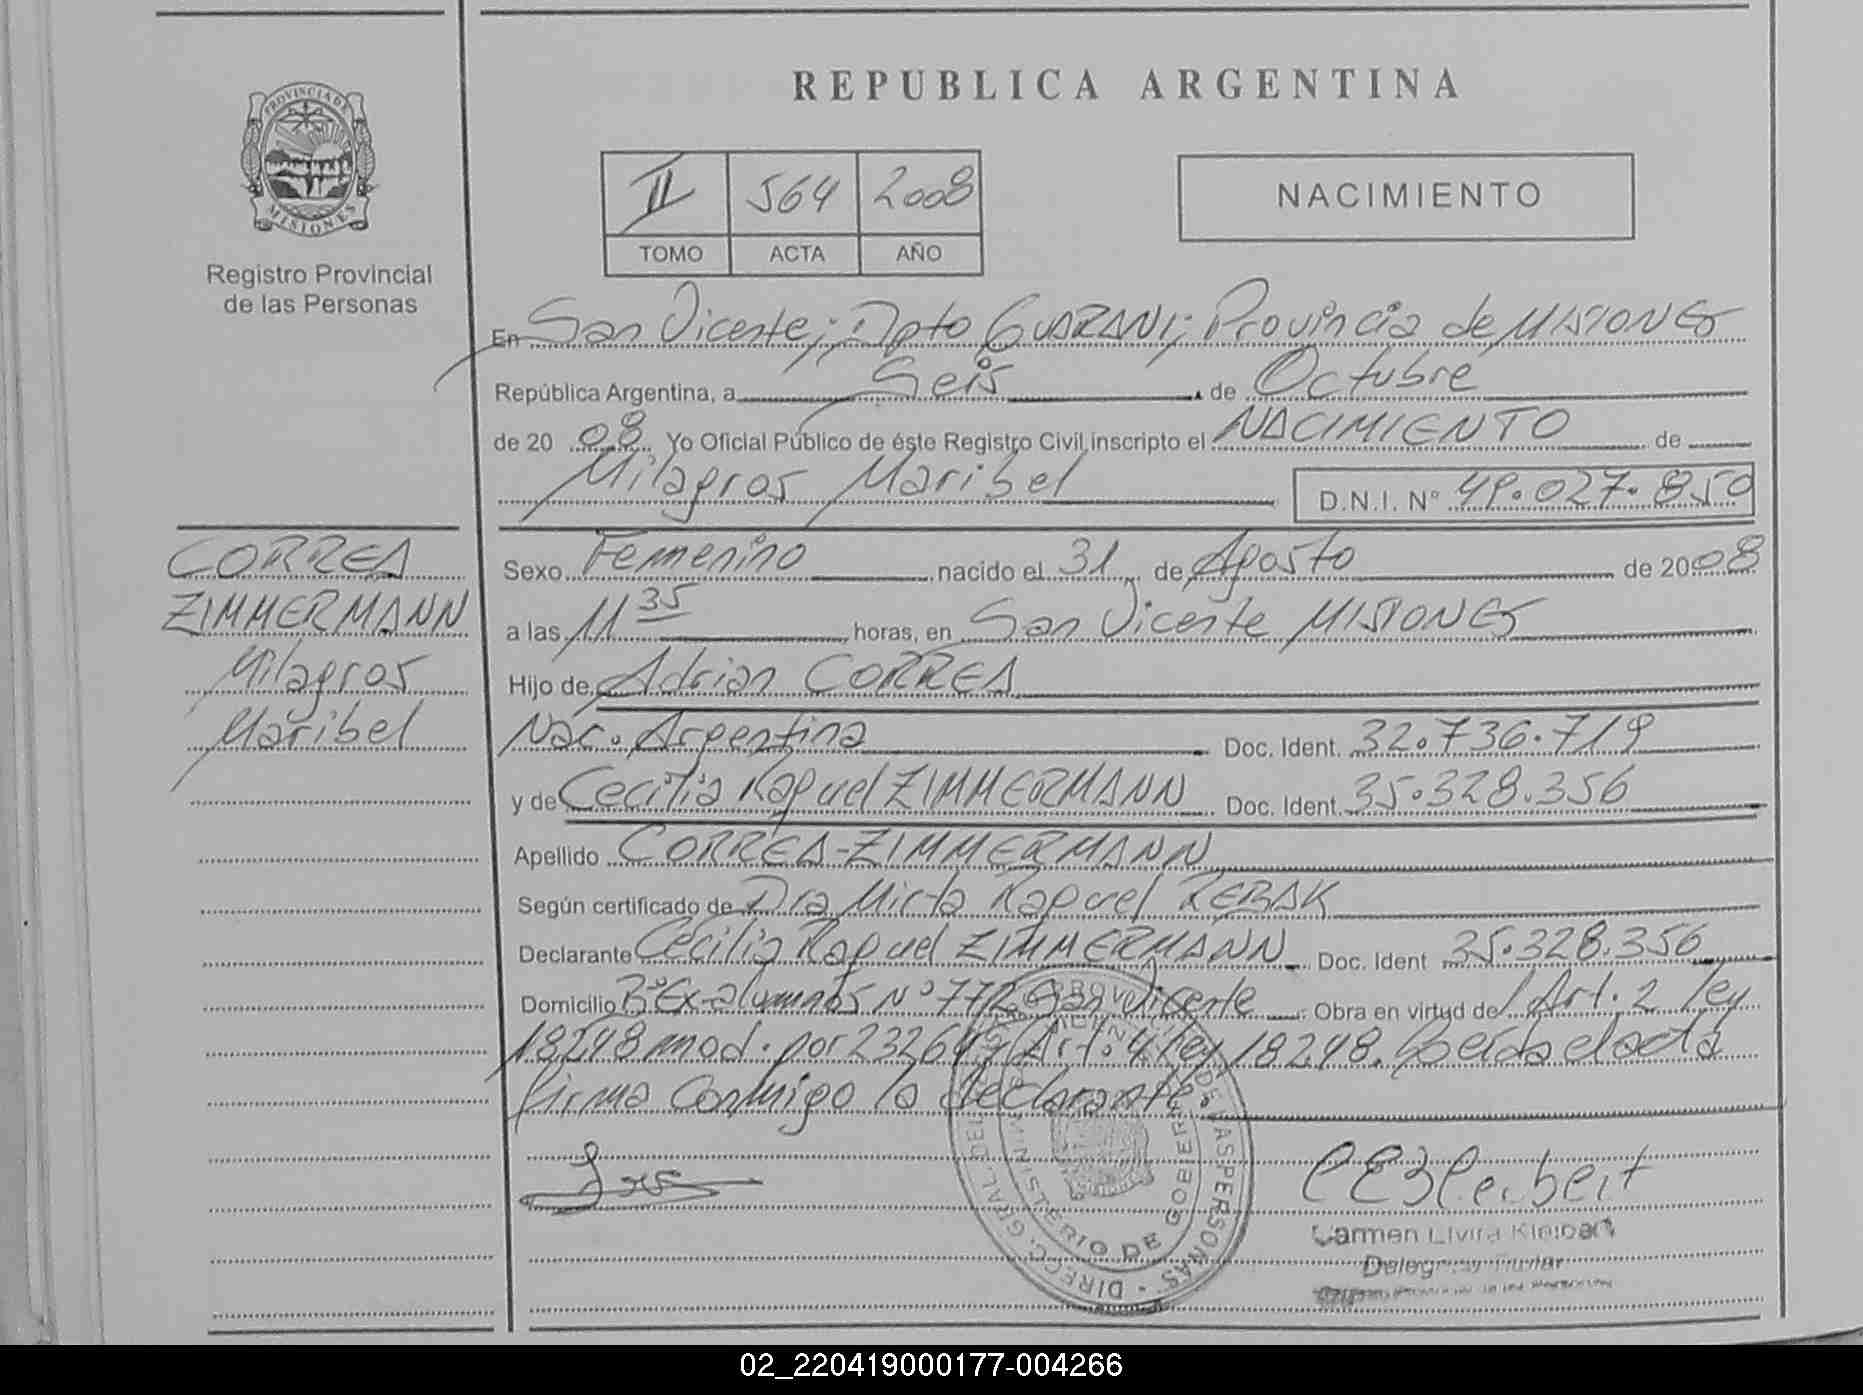 REPUBLICA ARGENTINA
PROVINCIA DE
MISIONES
Registro Provincial
de las Personas
II 564 2008
TOMO ACTA AÑO
NACIMIENTO
En San Vicente; Dpto GUARANI; Provincia de MISIONES
República Argentina, a Seis de Octubre
de 20 08 Yo Oficial Público de éste Registro Civil inscripto el NACIMIENTO de
Milagros Maribel D.N.I. Nº 49.027.850
CORREA
ZIMMERMANN
Milagros
Maribel
Sexo Femenino nacido el 31 de Agosto de 2008
a las 11 35 horas, en San Vicente MISIONES
Hijo de Adrian CORREA
Nac. Argentina Doc. Ident. 32.736.719
y de Cecilia Raquel ZIMMERMANN Doc. Ident. 35.328.356
Apellido CORREA-ZIMMERMANN
Según certificado de Dra Mirta Raquel REBAK
Declarante Cecilia Raquel ZIMMERMANN Doc. Ident 35.328.356
Domicilio Bº Ex-alumnos Nº 772 San Vicente Obra en virtud de Art. 2 ley
18248 mod. por 23264 Art. 4 ley 18248. el acta
firma conmigo la declarante.
MINISTERIO DE GOBIERNO
Carmen Elvira
02_220419000177-004266